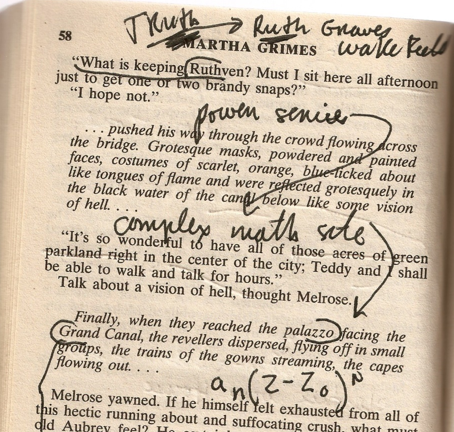 TRuth → Ruth Graves
58
MARTHA GRIMES
wake
"What is keeping Ruthven? Must I sit here all afternoon
just to get one or two brandy snaps?"
"I hope not."
power series
. . . pushed his way through the crowd flowing across
the bridge. Grotesque masks, powdered and painted
faces, costumes of scarlet, orange, blue licked about
like tongues of flame and were reflected grotesquely in
the black water of the canal below like some vision
of hell. . . .
complex math
"It's so wonderful to have all of those acres of green
parkland right in the center of the city; Teddy and I shall
be able to walk and talk for hours."
Talk about a vision of hell, thought Melrose.
Finally, when they reached the palazzo facing the
Grand Canal, the revellers dispersed, flying off in small
groups, the trains of the gowns streaming, the capes
flowing out. . . .
aₙ(z-z₀)ᴺ
Melrose yawned. If he himself felt exhausted from all of
this hectic running about and suffocating crush, what must
old Aubrey feel?